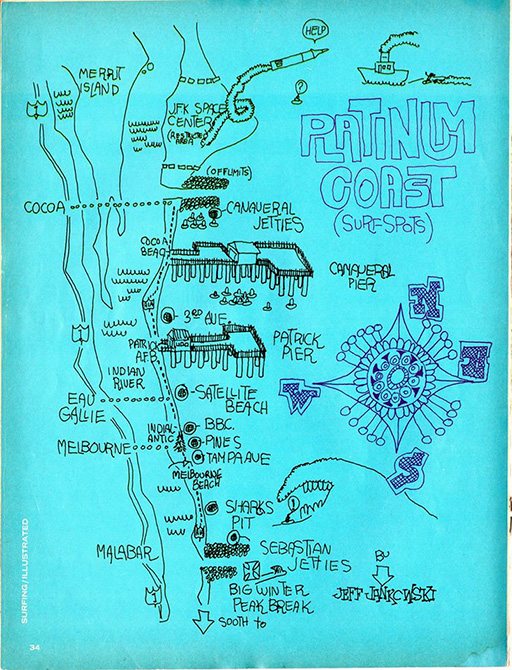 HELP
?
MERRIT
ISLAND
JFK SPACE
CENTER
(RESTRICTED
AREA)
PLATINUM
COAST
(SURF SPOTS)
(OFFLIMITS)
COCOA
CANAVERAL
JETTIES
COCOA
BEACH
CANAVERAL
PIER
N
A1A
3RD AVE.
1
PATRICK
A.F.B.
PATRICK
PIER
E
INDIAN
RIVER
W
SATELLITE
BEACH
EAU
GALLIE
INDIAL-
ANTIC
BBC.
PINES
TAMPA AVE
MELBOURNE
MELBOURNE
BEACH
S
SHARKS
PIT
A1A
MALABAR
SEBASTIAN
JETTIES
BY
JEFF JANKOWSKI
1
BIG WINTER
PEAK BREAK
SOOTH to
SURFING/ILLUSTRATED
34